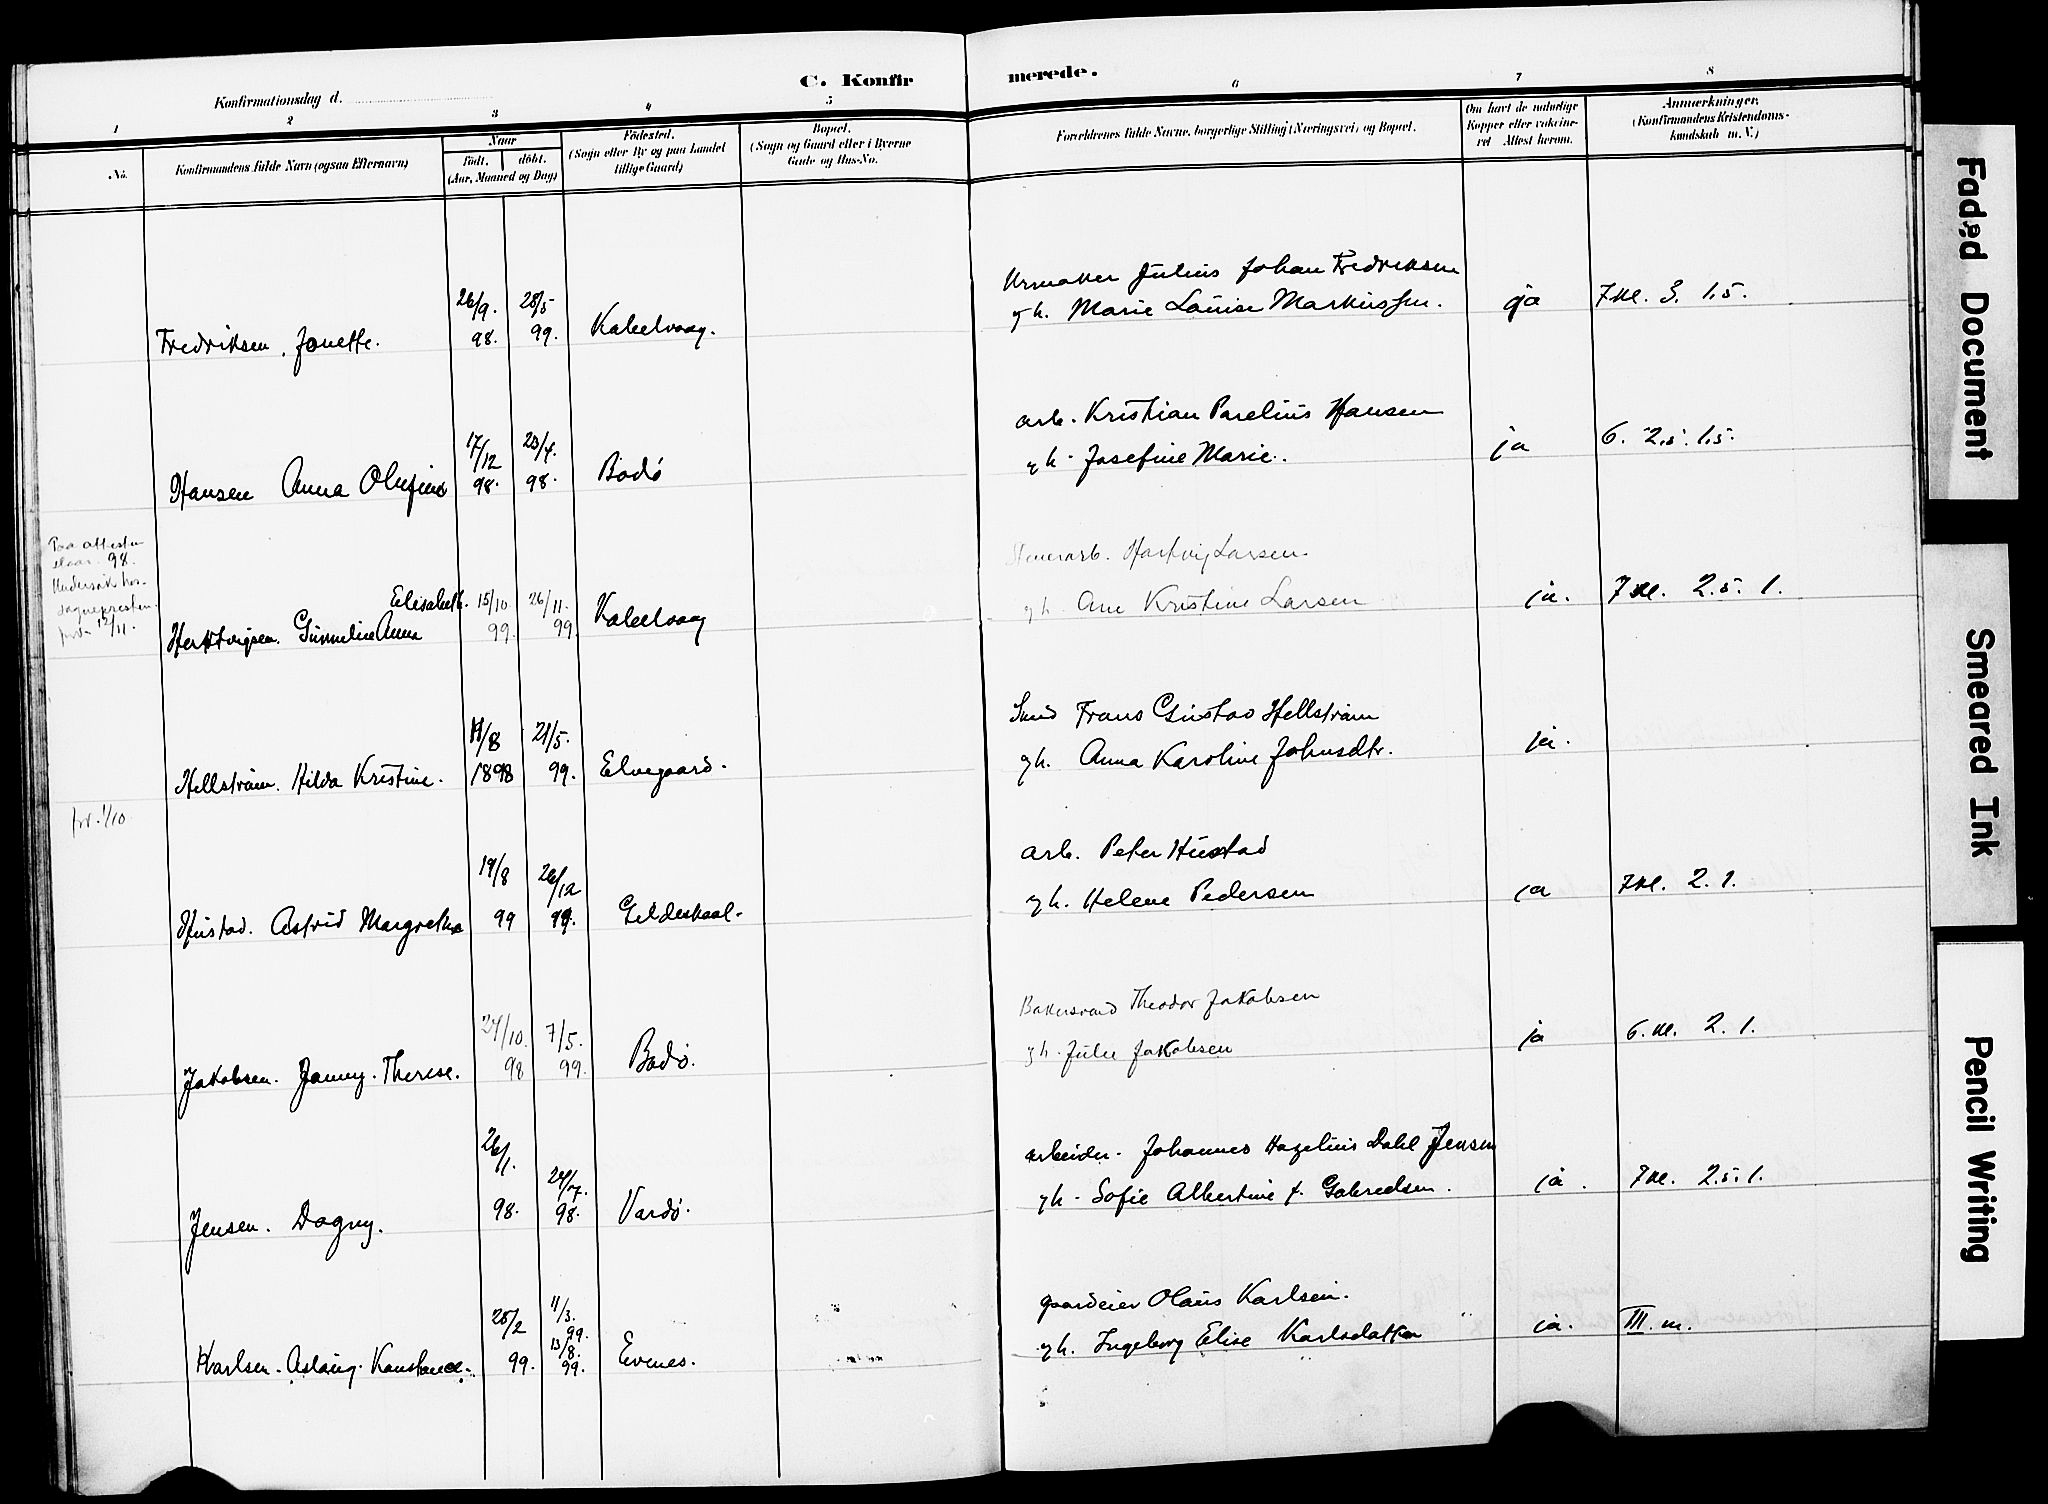 C. Konfirmerede.
Konfirmationsdag d.
1 2 3 4 5 6 7 8
No.
Konfirmandens fulde Navn (ogsaa Efternavn)
Naar
födt. döbt.
(Aar, Maaned og Dag)
Födested.
(Sogn eller By og paa Landet
tillige Gaard)
Bopæl.
(Sogn og Gaard eller i Byerne
Gade og Hus-No.
Forældrenes fulde Navne, borgerlige Stilling (Næringsvei) og Bopæl.
Om havt de naturlige
Kopper eller vaccine-
ret Attest herom.
Anmærkninger.
(Konfirmandens Kristendoms-
kundskab m. V.)
26/9. 28/5 Urmaker Julius Johan Fredriksen
Fredriksen, Jonette. 98. 99. Kabelvaag. gh. Marie Louise Markussen. ja 7kl. 3. 1.5.
17/12 23/4. arb. Kristian Parelius Hansen
Hansen Anna Olufine 98. 98. Bodö gh. Josefine Marie. ja 6. 2.5. 1.5.
Paa attesten
98.
Undersök hos
sognepresten.
Hartvig Larsen.
Elisabeth. 15/10 26/11. gh. Ane Kristine Larsen ja. 7kl. 2.5. 1.
Herttvigsen. Gunneline Anna 99. 99. Kabelvaag
11/8 21/5. Smed Frans Gustav Hellström
Hellström. Hilda Kristine. 1898 99. Elvegaard. gh. Anna Karoline Johnsdtr. ja.
1/10.
19/8 26/12 arb. Peter Hustad
Hustad. Astrid Margrethe 99 99. Gildeskaal. gh. Helene Pedersen ja 7kl. 2. 1.
24/10. 7/5. Bakersvend Theodor Jakobsen
Jakobsen. Janny. Therese. 98 99. Bodö. gh. Julie Jakobsen ja 6. kl. 2. 1.
26/1. 24/7. arbeider. Johannes Hagelius Dahl Jensen
Jensen. Dagny. 98. 98. Vardö. gh. Sofie Albertine f. Gabrielsen. ja. 7kl. 2.5. 1.
25/2 11/3. 99. gaardeier Olaus Karlsen.
Karlsen. Aslaug. Konstance. 99. 13/8. 99. Evenes. gh. Ingeborg Elise Karlsdatter ja. III. m.
Faded Document
Smeared Ink
Pencil Writing